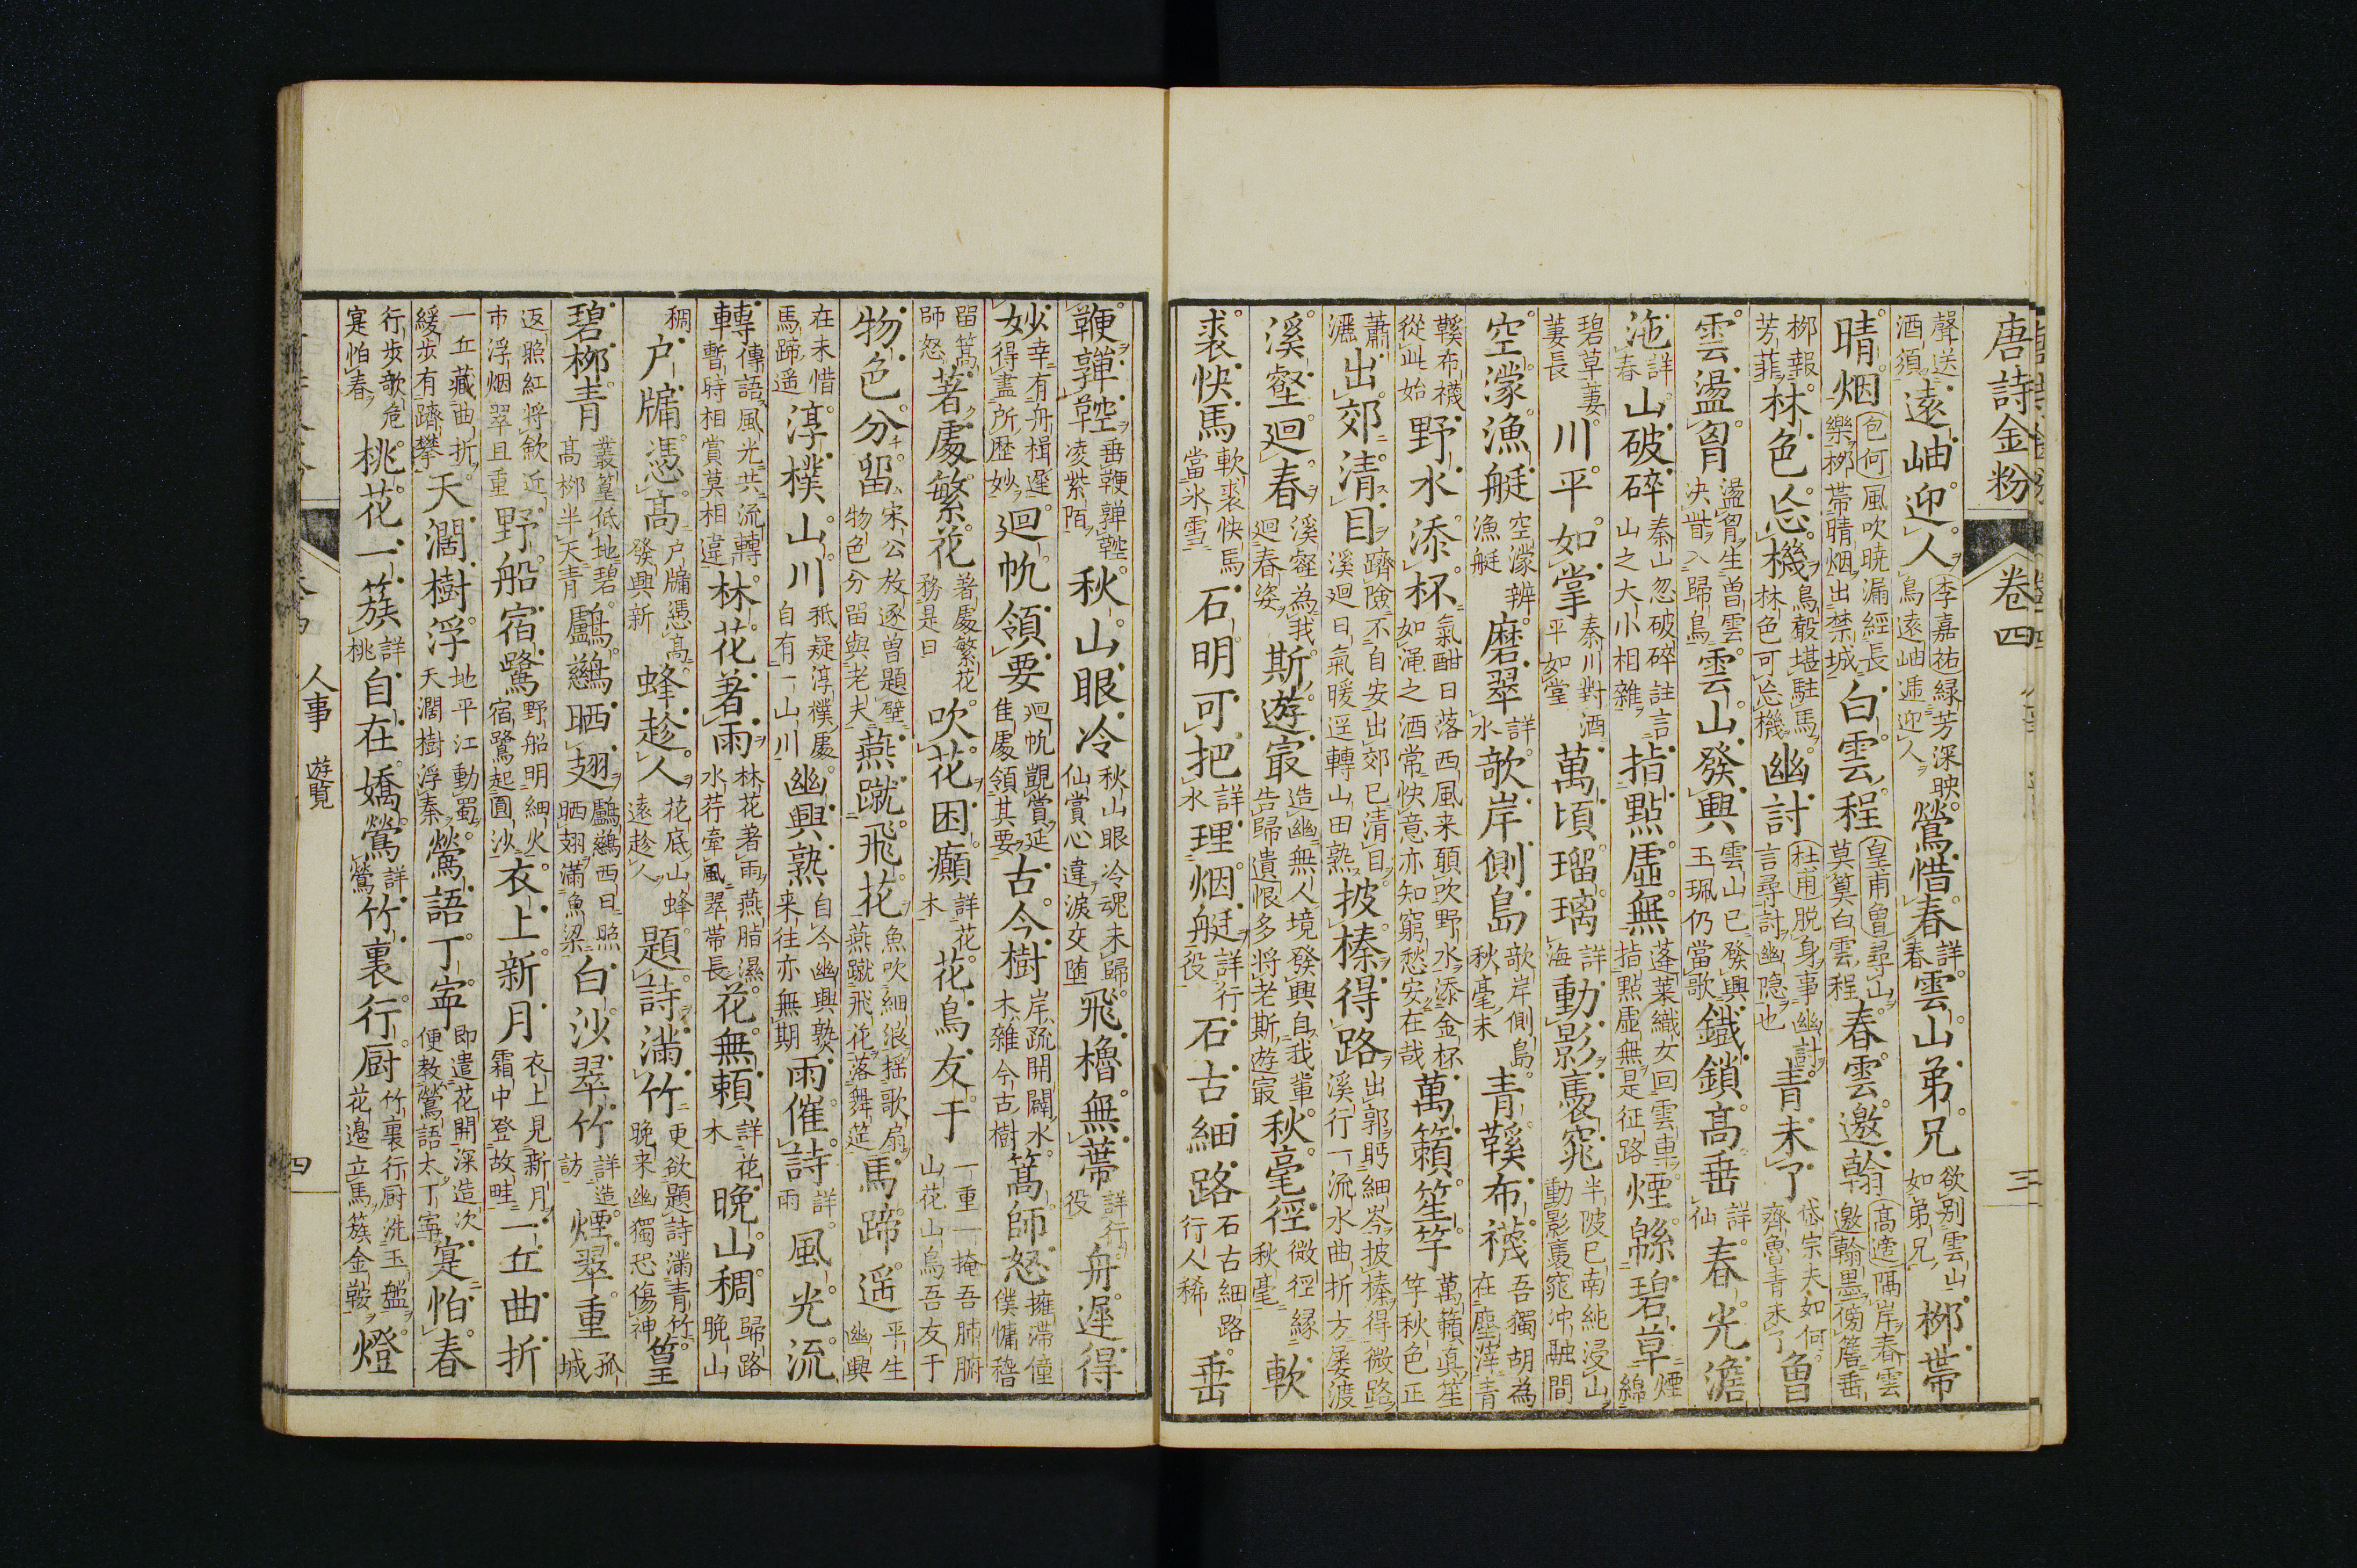 唐詩金粉 卷四 三
聲送酒須遠岫迎人李嘉祐緑芳深映鳥遠岫逓迎人鶯惜春詳春雲山弟兄欲别雲山如弟兄栁帯
晴烟包何風吹曉漏經長樂栁帯晴烟出禁城白雲程皇甫曾尋山莫筭白雲程春雲邀翰高適隔岸春雲邀翰墨傍簷垂
栁報芳菲林色忘機鳥嗀堪駐馬林色可忘機幽討杜甫脱身事幽討言尋討幽隠也青未了岱宗夫如何齊魯青未了魯
雲盪胷盪胷生曽雲决眥入歸鳥雲山發興雲山已發興玉珮仍當歌鐵鎖高垂詳仙春光澹
沲詳春山破碎秦山忽破碎註言山之大小相雜指點虚無蓬莱織女回雲車指點虚無是征路煙緜碧草煙綿
碧草萋萋長川平如掌秦川對酒平如堂萬頃瑠璃詳海動影裊窕半陂已南純浸山動影裊窕沖融間
空濛漁艇空濛辨漁艇磨翠詳水欹岸側島欹岸側島秋毫末青鞵布襪吾獨胡為在塵滓青
鞵布襪從此始野水添杯氣酣日落西風来願吹野水添金杯如渑之酒常快意亦知窮愁安在哉萬籟笙竽萬籟真笙竽秋色正
蕭灑出郊清目躋險不自安出郊已清目溪迴日氣暖逕轉山田熟披榛得路出郭眄細岑披榛得微路溪行一流水曲折方屡渡
溪壑迴春溪壑為我迴春姿斯遊冣造幽無人境發興自我輩告歸遺恨多将老斯遊冣秋毫徑微徑縁秋毫軟
裘快馬軟裘快馬當氷雪石明可把詳水理烟艇詳行役石古細路石古細路行人稀垂
鞭嚲鞚垂鞭嚲鞚凌紫陌秋山眼冷秋山眼冷魂未歸仙賞心違淚交堕飛櫓無蔕詳行役舟遲得
妙幸有舟楫遲得盡所歴妙迴帆領要迴帆覬賞延佳處領其要古今樹岸疏開闢水木雜今古樹篙師怒擁滞僮僕慵稽
留篙師怒著處繁花著處繁花務是日吹花困癲詳花木花鳥友于一重一掩吾肺腑山花山鳥吾友于
物色分留宋公放逐曽題壁物色分留與老夫燕蹴飛花魚吹細浪揺歌扇燕蹴飛花落舞筵馬蹄遥平生幽興
在未惜馬蹄遥淳樸山川秪疑淳樸處自有一山川幽興熟自今幽興熟来往亦無期雨催詩詳雨風光流
轉傳語風光共流轉暫時相賞莫相違林花著雨林花著雨燕脂濕水荇牽風翠帯長花無頼詳花木晩山稠歸路晩山
稠户牖憑高户牖憑高發興新蜂趁人花底山蜂遠趁人題詩滿竹更欲題詩滿青竹晩来幽獨恐傷神篁
碧栁青叢篁低地碧髙栁半天青鸕鷀晒翅鸕鷀西日照晒翅滿魚梁白沙翠竹詳造訪煙翠重孤城
返照紅将歛近市浮烟翠且重野船宿鷺野船明細火宿鷺起圓沙衣上新月衣上見新月霜中登故畦一丘曲折
一丘藏曲折緩歩有躋攀天濶樹浮地平江動蜀天濶樹浮秦鶯語丁寧即遣花開深造次便教鶯語太丁寧寔怕春
行歩欹危寔怕春桃花一簇詳桃自在嬌鶯詳鶯竹裏行厨竹裏行厨洗玉盤花邉立馬簇金鞍燈
人事 遊覽 四